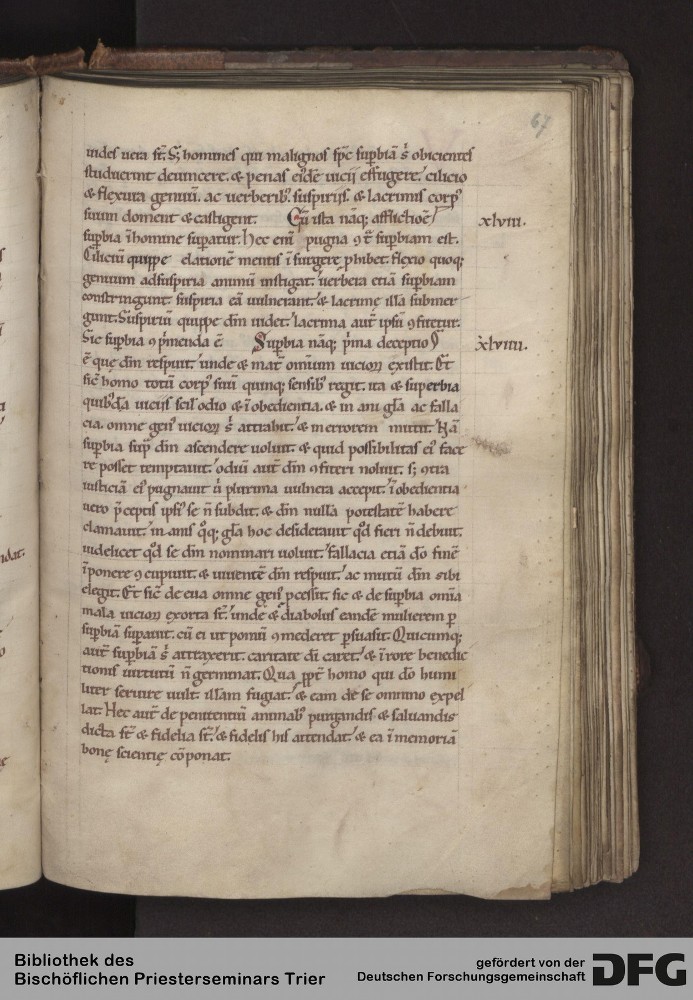 67
uides uera st̄. S; homines qui malignos sp̄c supbiā s̄ obicientes
studuerint deuincere. & penas eidē uicij effugere. cilicio
& flexura genuū. ac uerberib᷒. suspirijs. & lacrimis corp᷒
suum doment & castigent. Cū ista nāq; afflictiōe xlviii.
supbia ī homine supatur. Hec enī pugna ꝯt̄ supbiam est.
Ciliciū quippe elationē mentis īsurgere phibet. flexio quoq;
genuum ad suspiria animū instigat. uerbera etiā supbiam
constringunt. suspiria eā uulnerant. & lacrime illā submer
gunt. Suspiriū quippe dm̄ uidet. lacrima aut̄ ipsū ꝯfitetur.
Sic supbia ꝯp̄menda ē. Supbia nāq; p̄ma deceptio xlviiii.
ē que dm̄ respuit. unde & mat̄ omnium uicioꝝ existit. Et
sic̄ homo totū corp᷒ suū quinq; sensib᷒ regit. ita & superbia
quib᷒dā uicijs scil᷒ odio & īobedientia. & in ani gl̄a ac falla
cia. omne gen᷒ uicioꝝ s̄ attrahit. & in errorem mittit. Nā
supbia sup̄ dm̄ ascendere uoluit. & quid possibilitas ei᷒ face
re posset temptauit. odiū aut̄ dm̄ ꝯfiteri noluit. s; ꝯtra
iusticiā ei᷒ pugnauit ū plurima uulnera accepit. īobedientia
uero p̄ceptis ipsi᷒ se n̄ subdit. & dm̄ nullā potestatē habere
clamauit. inanis q̊q; gl̄a hoc desiderauit qd̄ fieri n̄ debuit.
uidelicet qd̄ se dm̄ nominari uoluit. fallacia etiā dō finē
īponere ꝯcupiuit. & uiuentē dm̄ respuit. ac mutū dm̄ sibi
elegit. Et sic̄ de eua omne gen᷒ pcessit. sic & de supbia om̄ia
mala uicioꝝ exorta st̄. unde & diabolus eandē mulierem p
supbiā supauit. cū ei ut pomū ꝯmederet psuasit. Quicumq;
aut̄ supbiā s̄ attraxerit. caritate dī caret. & ī rore benedic
tionis uirtutū n̄ germinat. Qua ppt̄ homo qui dō humi
liter seruire uult. illam fugiat. & eam de se omnino expel
lat. Hec aut̄ de penitentiū animab᷒ purgandis & saluandis
dicta st̄ & fidelia st̄. & fidelis his attendat. & ea ī memoriā
bonę scientię cōponat.
Bibliothek des
Bischöflichen Priesterseminars Trier
gefördert von der
Deutschen Forschungsgemeinschaft
DFG